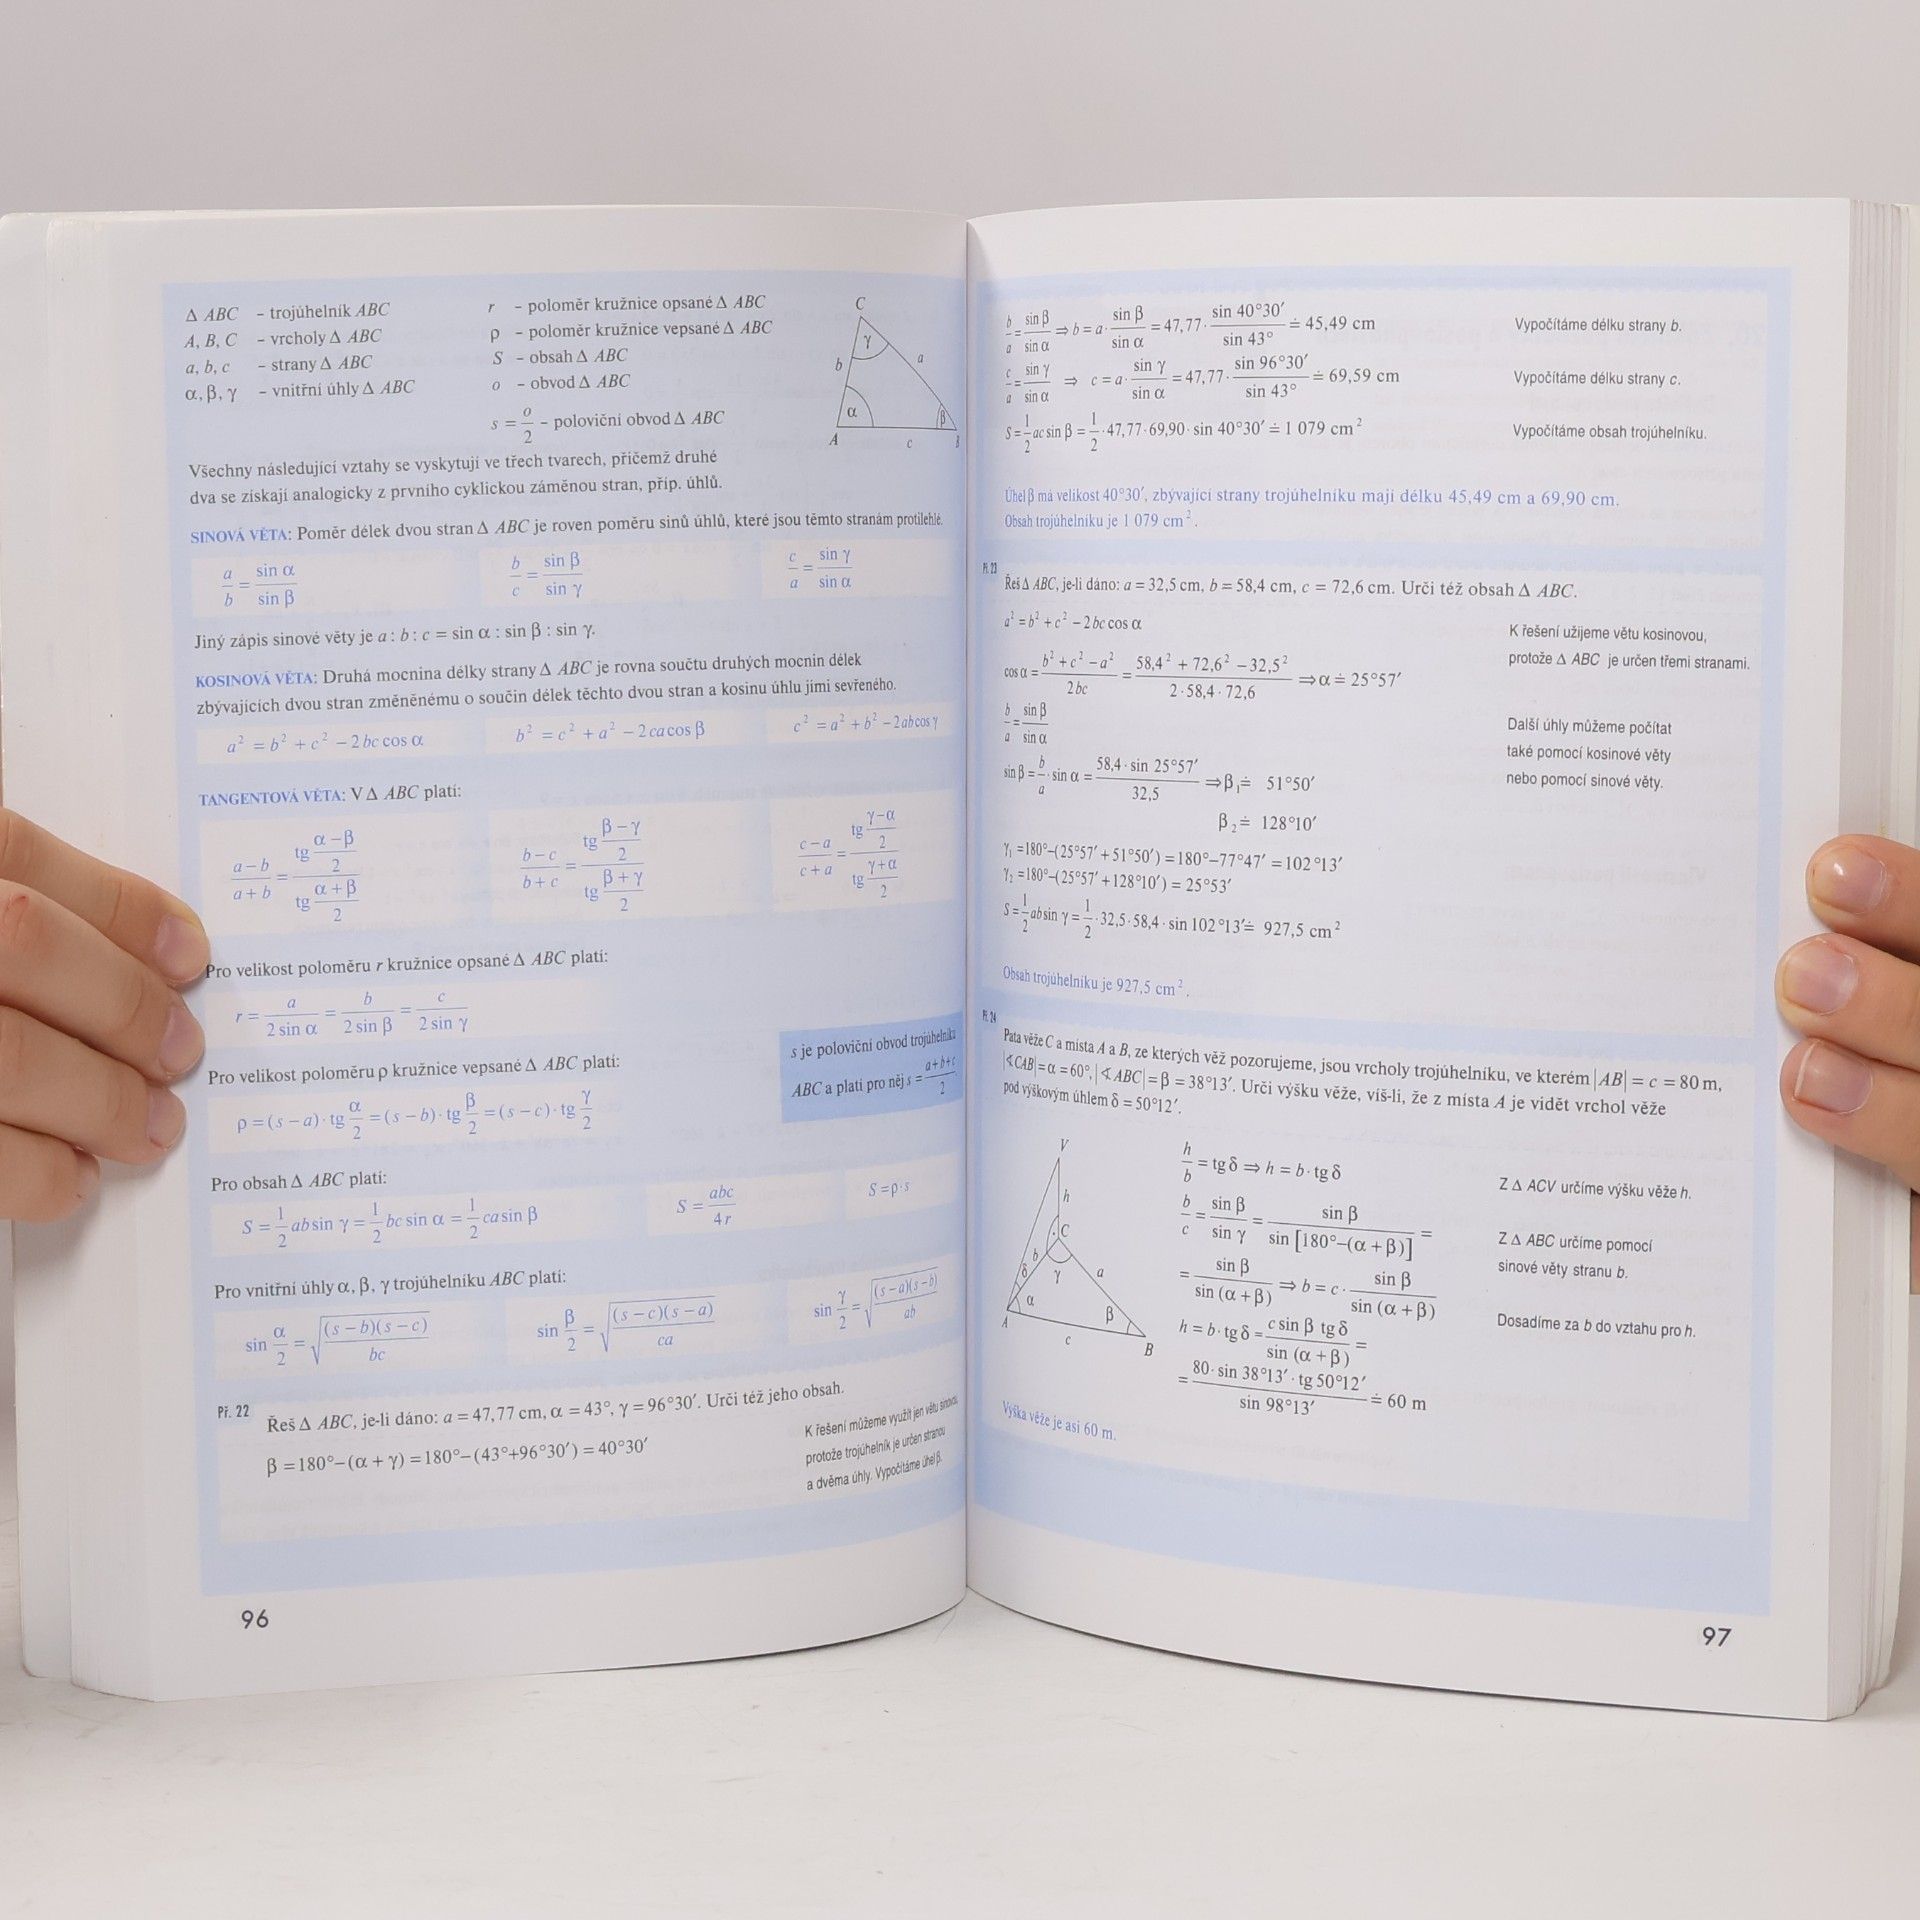 Δ ABC – trojúhelník ABC
A, B, C – vrcholy Δ ABC
a, b, c – strany Δ ABC
α, β, γ – vnitřní úhly Δ ABC
r – poloměr kružnice opsané Δ ABC
ρ – poloměr kružnice vepsané Δ ABC
S – obsah Δ ABC
o – obvod Δ ABC
s = o/2 – poloviční obvod Δ ABC
C
γ
b
a
α
β
A
c
B
Všechny následující vztahy se vyskytují ve třech tvarech, přičemž druhé
dva se získají analogicky z prvního cyklickou záměnou stran, příp. úhlů.
SINOVÁ VĚTA: Poměr délek dvou stran Δ ABC je roven poměru sinů úhlů, které jsou těmto stranám protilehlé.
a/b = sin α / sin β    b/c = sin β / sin γ    c/a = sin γ / sin α
Jiný zápis sinové věty je a : b : c = sin α : sin β : sin γ.
KOSINOVÁ VĚTA: Druhá mocnina délky strany Δ ABC je rovna součtu druhých mocnin délek
zbývajících dvou stran změněnému o součin délek těchto dvou stran a kosinu úhlu jimi sevřeného.
a² = b² + c² – 2bc cos α    b² = c² + a² – 2ca cos β    c² = a² + b² – 2ab cos γ
TANGENTOVÁ VĚTA: V Δ ABC platí:
(a – b)/(a + b) = tg (α – β)/2 / tg (α + β)/2    (b – c)/(b + c) = tg (β – γ)/2 / tg (β + γ)/2    (c – a)/(c + a) = tg (γ – α)/2 / tg (γ + α)/2
Pro velikost poloměru r kružnice opsané Δ ABC platí:
r = a/(2 sin α) = b/(2 sin β) = c/(2 sin γ)
s je poloviční obvod trojúhelníku
ABC a platí pro něj s = (a+b+c)/2
Pro velikost poloměru ρ kružnice vepsané Δ ABC platí:
ρ = (s – a) · tg α/2 = (s – b) · tg β/2 = (s – c) · tg γ/2
Pro obsah Δ ABC platí:
S = 1/2 ab sin γ = 1/2 bc sin α = 1/2 ca sin β    S = abc/4r    S = ρ·s
Pro vnitřní úhly α, β, γ trojúhelníku ABC platí:
sin α/2 = √((s – b)(s – c)/bc)    sin β/2 = √((s – c)(s – a)/ca)    sin γ/2 = √((s – a)(s – b)/ab)
Př. 22
Řeš Δ ABC, je-li dáno: a = 47,77 cm, α = 43°, γ = 96°30′. Urči též jeho obsah.
β = 180°–(α + γ) = 180°–(43°+96°30′) = 40°30′
K řešení můžeme využít jen větu sinovou,
protože trojúhelník je určen stranou
a dvěma úhly. Vypočítáme úhel β.
96
b/a = sin β / sin α ⇒ b = a · sin β / sin α = 47,77 · sin 40°30′ / sin 43° ≐ 45,49 cm    Vypočítáme délku strany b.
c/a = sin γ / sin α ⇒ c = a · sin γ / sin α = 47,77 · sin 96°30′ / sin 43° ≐ 69,59 cm    Vypočítáme délku strany c.
S = 1/2 ac sin β = 1/2 · 47,77 · 69,90 · sin 40°30′ ≐ 1 079 cm²    Vypočítáme obsah trojúhelníku.
Úhel β má velikost 40°30′, zbývající strany trojúhelníku mají délku 45,49 cm a 69,90 cm.
Obsah trojúhelníku je 1 079 cm².
Př. 23
Řeš Δ ABC, je-li dáno: a = 32,5 cm, b = 58,4 cm, c = 72,6 cm. Urči též obsah Δ ABC.
a² = b² + c² – 2bc cos α
K řešení užijeme větu kosinovou,
protože Δ ABC je určen třemi stranami.
cos α = (b² + c² – a²)/2bc = (58,4² + 72,6² – 32,5²)/(2 · 58,4 · 72,6) ⇒ α ≐ 25°57′
b/a = sin β / sin α
Další úhly můžeme počítat
také pomocí kosinové věty
nebo pomocí sinové věty.
sin β = b/a · sin α = 58,4 · sin 25°57′ / 32,5 ⇒ β₁ ≐ 51°50′
β₂ ≐ 128°10′
γ₁ = 180°–(25°57′ + 51°50′) = 180°–77°47′ = 102°13′
γ₂ = 180°–(25°57′ + 128°10′) = 25°53′
S = 1/2 ab sin γ = 1/2 · 32,5 · 58,4 · sin 102°13′ ≐ 927,5 cm²
Obsah trojúhelníku je 927,5 cm².
Př. 24
Pata věže C a místa A a B, ze kterých věž pozorujeme, jsou vrcholy trojúhelníku, ve kterém |AB| = c = 80 m,
|∢CAB| = α = 60°, |∢ABC| = β = 38°13′. Urči výšku věže, víš-li, že z místa A je vidět vrchol věže
pod výškovým úhlem δ = 50°12′.
V
h
C
b
δ
γ
a
α
β
A
c
B
h/b = tg δ ⇒ h = b · tg δ    Z Δ ACV určíme výšku věže h.
b/c = sin β / sin γ = sin β / sin [180°–(α + β)] =
Z Δ ABC určíme pomocí
sinové věty stranu b.
= sin β / sin (α + β) ⇒ b = c · sin β / sin (α + β)
Dosadíme za b do vztahu pro h.
h = b · tg δ = c sin β tg δ / sin (α + β) =
= 80 · sin 38°13′ · tg 50°12′ / sin 98°13′ ≐ 60 m
Výška věže je asi 60 m.
97